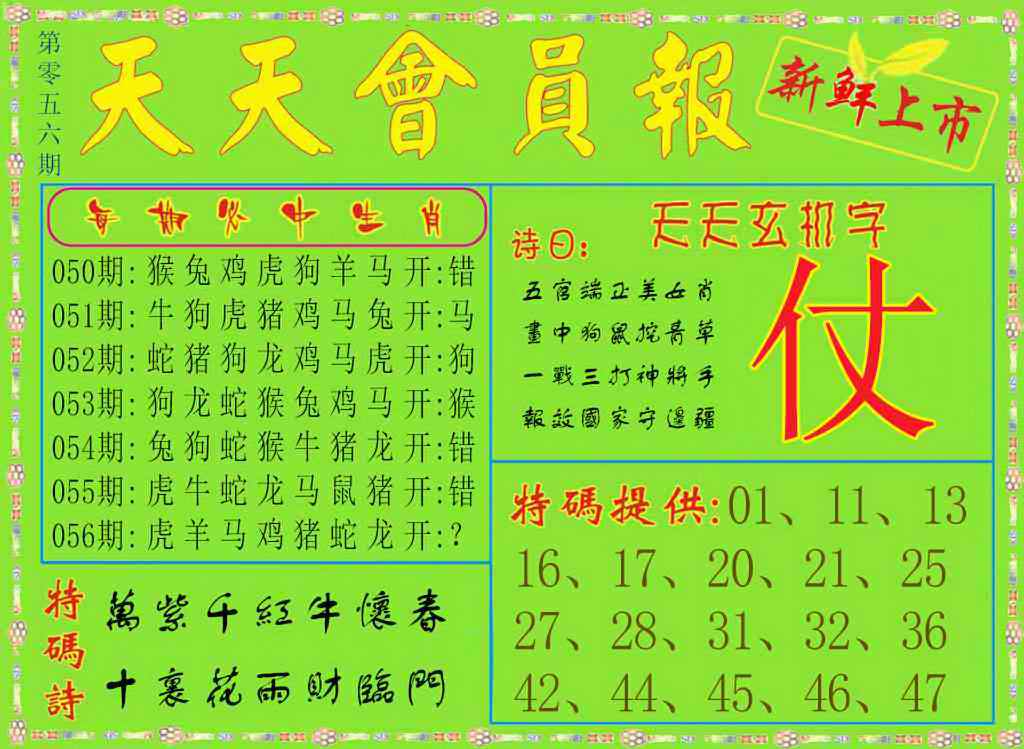 第零五六期
天天會員報
新鮮上市
每期必中生肖
050期: 猴兔鸡虎狗羊马开:错
051期: 牛狗虎猪鸡马兔开:马
052期: 蛇猪狗龙鸡马虎开:狗
053期: 狗龙蛇猴兔鸡马开:猴
054期: 兔狗蛇猴牛猪龙开:错
055期: 虎牛蛇龙马鼠猪开:错
056期: 虎羊马鸡猪蛇龙开:?
特碼詩
萬紫千紅牛懷春
十裏花雨財臨門
天天玄机字
诗曰:
五官端正美女肖
畫中狗鼠挖青草
一戰三打神將手
報效國家守邊疆
仗
特碼提供:01、11、13
16、17、20、21、25
27、28、31、32、36
42、44、45、46、47